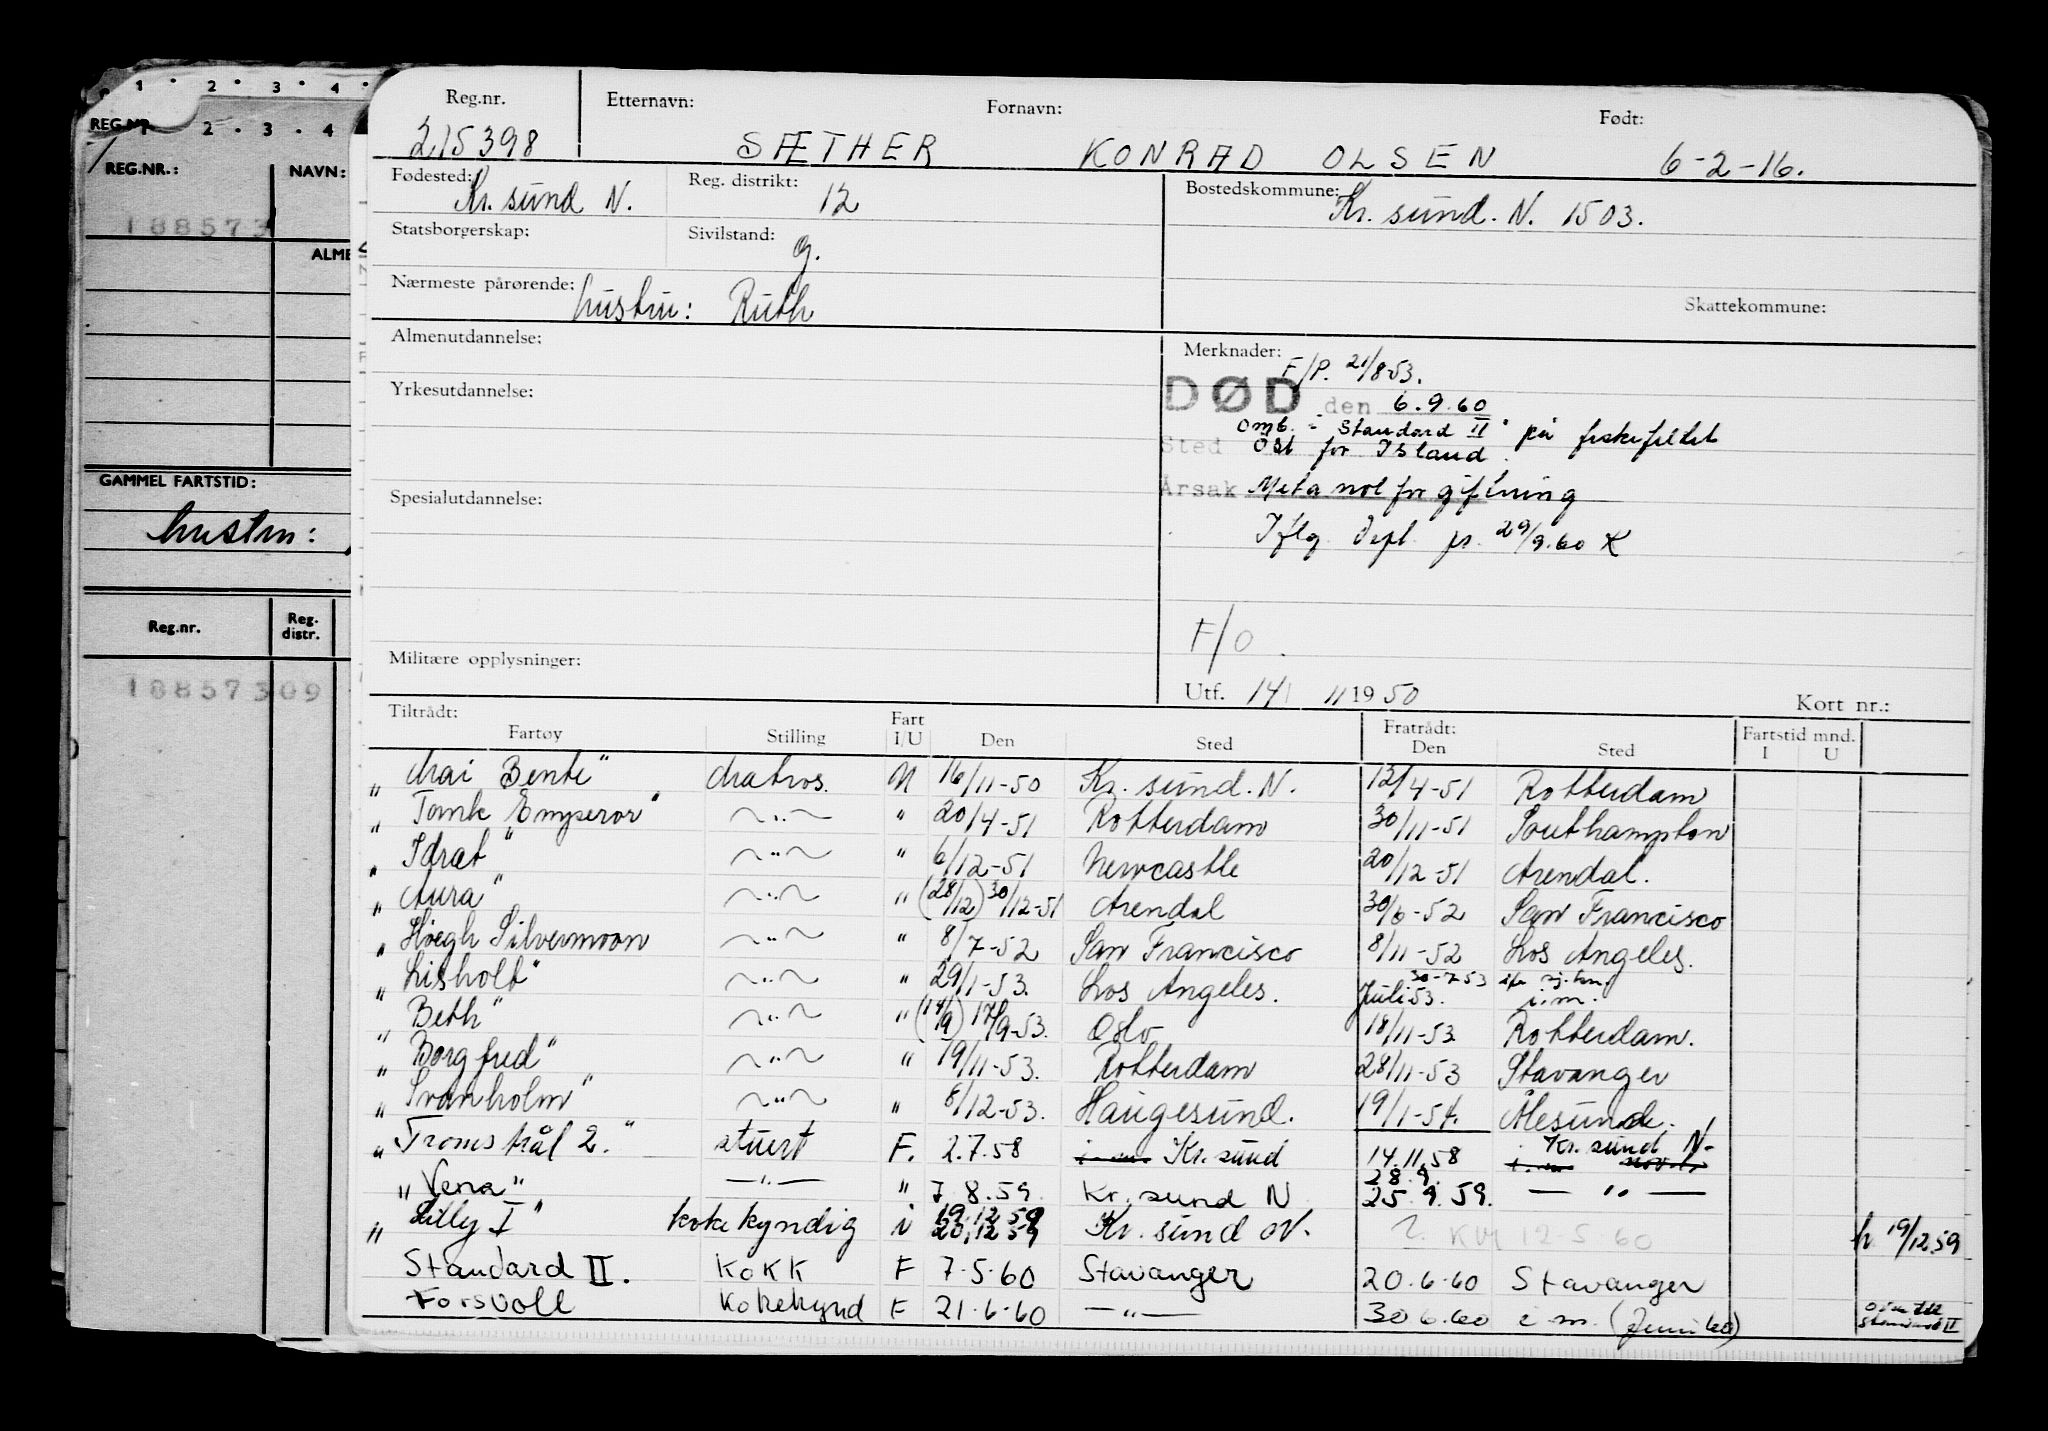 1 2 3 4
REG.NR. 1 2 3 4
REG.NR.: NAVN:
188573
ALME
GAMMEL FARTSTID:
hustru:
Reg.nr. Reg. distr.
188573 09
Reg.nr. Etternavn: Fornavn: Født:
215398 SÆTHER KONRAD OLSEN 6-2-16.
Fødested: Kr. sund N. Reg. distrikt: 12 Bostedskommune: Kr. sund. N. 1503.
Statsborgerskap: Sivilstand: g.
Nærmeste pårørende: hustru: Ruth Skattekommune:
Almenutdannelse: Merknader: F/P. 21/8 53.
Yrkesutdannelse: DØD den 6.9.60
omb. "Standard II" på fiskefeltet
Sted Öst for Island.
Spesialutdannelse: Årsak Metanol forgiftning
Iflg. Dept. pr. 29/9.60 K
F/O.
Militære opplysninger:
Utf. 14/ 11 1950 Kort nr.:
Tiltrådt: Fart Fratrådt: Fartstid mnd.
Fartøy Stilling I/U Den Sted Den Sted I U
"Mai Bente" Matros. U 16/11-50 Kr. sund. N. 12/4-51 Rotterdam
"Tank Emperor" ~"~ " 20/4-51 Rotterdam 30/11-51 Southampton
"Idræt" ~"~ " 6/12-51 Newcastle 20/12-51 Arendal.
"Aura" ~"~ " (28/12) 30/12-51 Arendal 30/6-52 San Francisco
"Høegh Silvermoon ~"~ " 8/7-52 San Francisco 8/11-52 Los Angeles.
"Lisholt" ~"~ " 29/1-53. Los Angeles. Juli 53. 30-7-53 i.m.
"Beth" ~"~ " (14/9) 17/9-53. Oslo 18/11-53 Rotterdam.
"Borgfred" ~"~ " 19/11-53. Rotterdam 28/11-53 Stavanger
"Svanholm" ~"~ " 8/12-53. Haugesund. 19/1-54. Ålesund.
"Tromstrål 2." stuert F. 2.7.58 i.m. Kr. sund 14.11.58 Kr. sund N.
"Vena" —"— " 7.8.59. Kr. sund N 28.9. 25.9.59. —"—
"Lilly I" kokekyndig i 19.12.59 20.12.59 Kr. sund N. ? 12-5 60 h 19/12 59
Standard II. Kokk F 7.5.60 Stavanger 20.6.60 Stavanger
Forsvoll Kokekynd F 21.6.60 —"— 30 6.60 i m. (Juni 60) Standard II